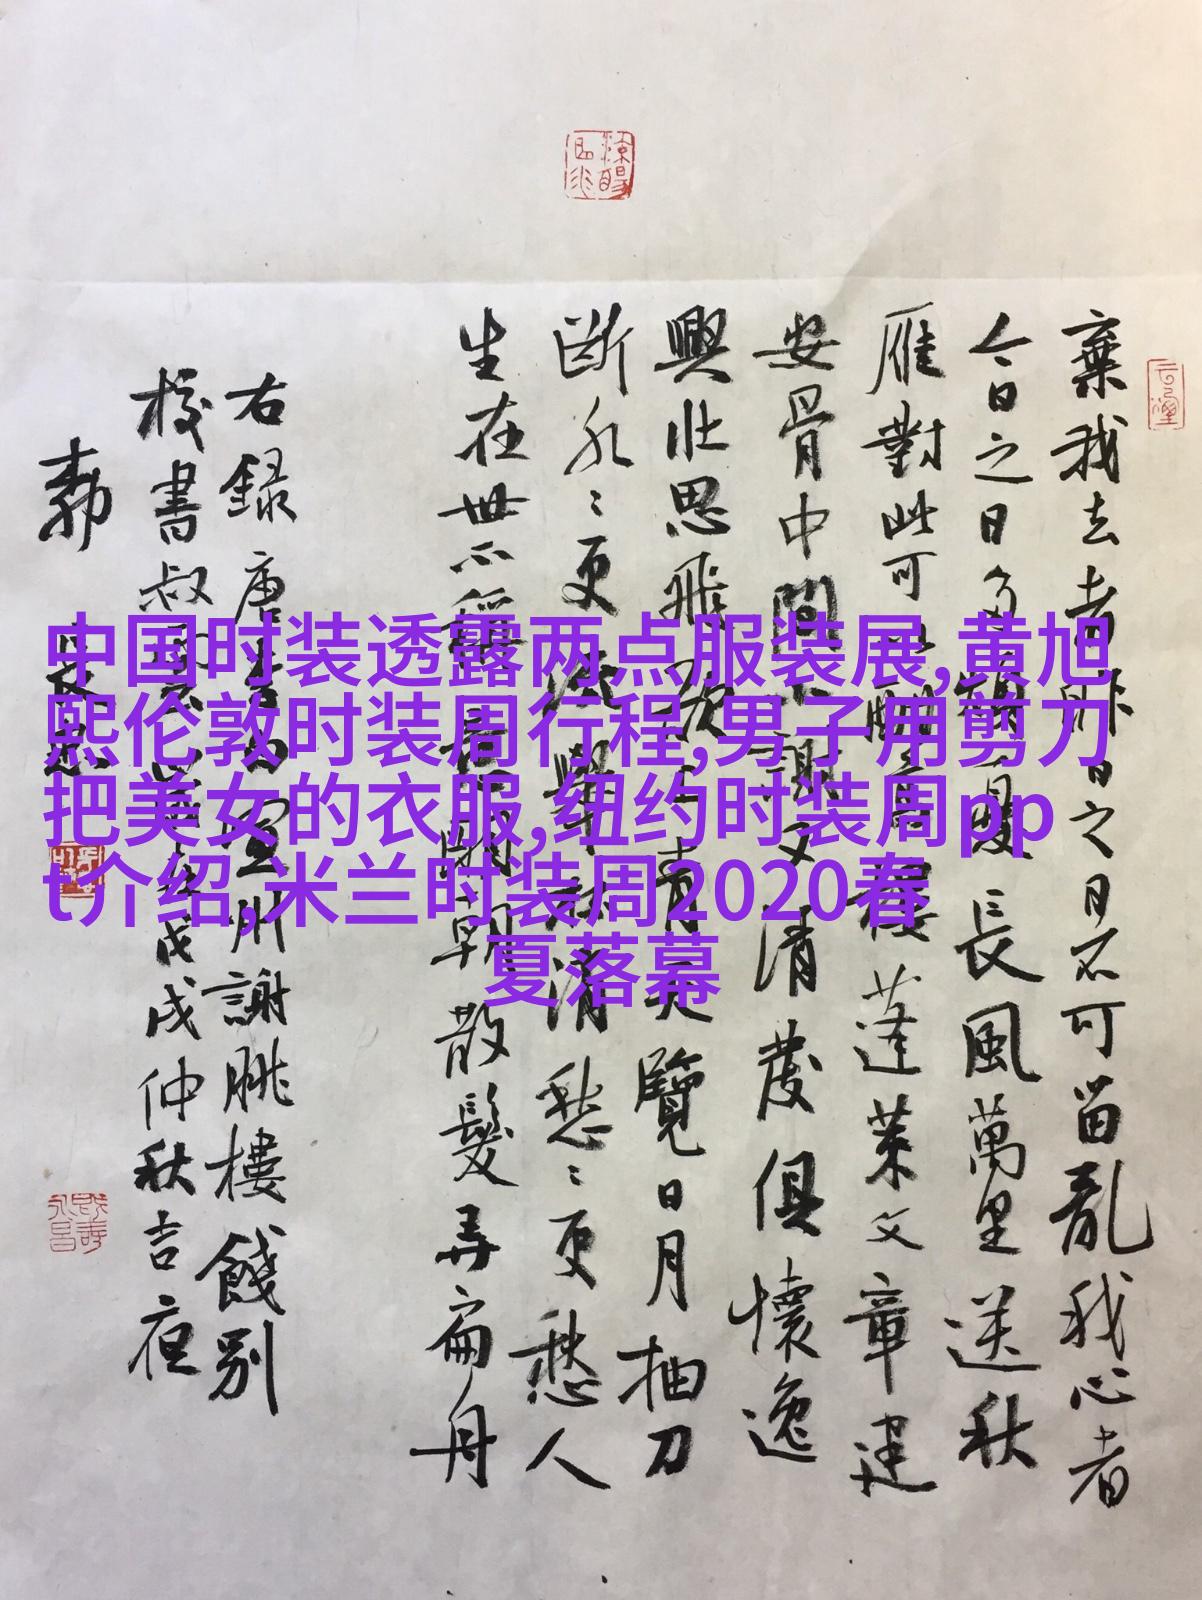 中国时装透露两点服装展,黄旭
熙伦敦时装周行程,男子用剪刀
把美女的衣服,纽约时装周pp
t介绍,米兰时装周2020春
夏落幕
棄我去者昨日之日不可留亂我心者
今日之日多煩憂長風萬里送秋
雁對此可以酣高樓蓬萊文章建
安骨中間小謝又清發俱懷逸
興壯思飛欲上青天覽日月抽刀
斷水〻更流舉杯消愁〻更愁人
生在世不稱意明朝散髮弄扁舟
右録唐李白宣州謝朓樓餞別
校書叔雲戊戌仲秋吉夜